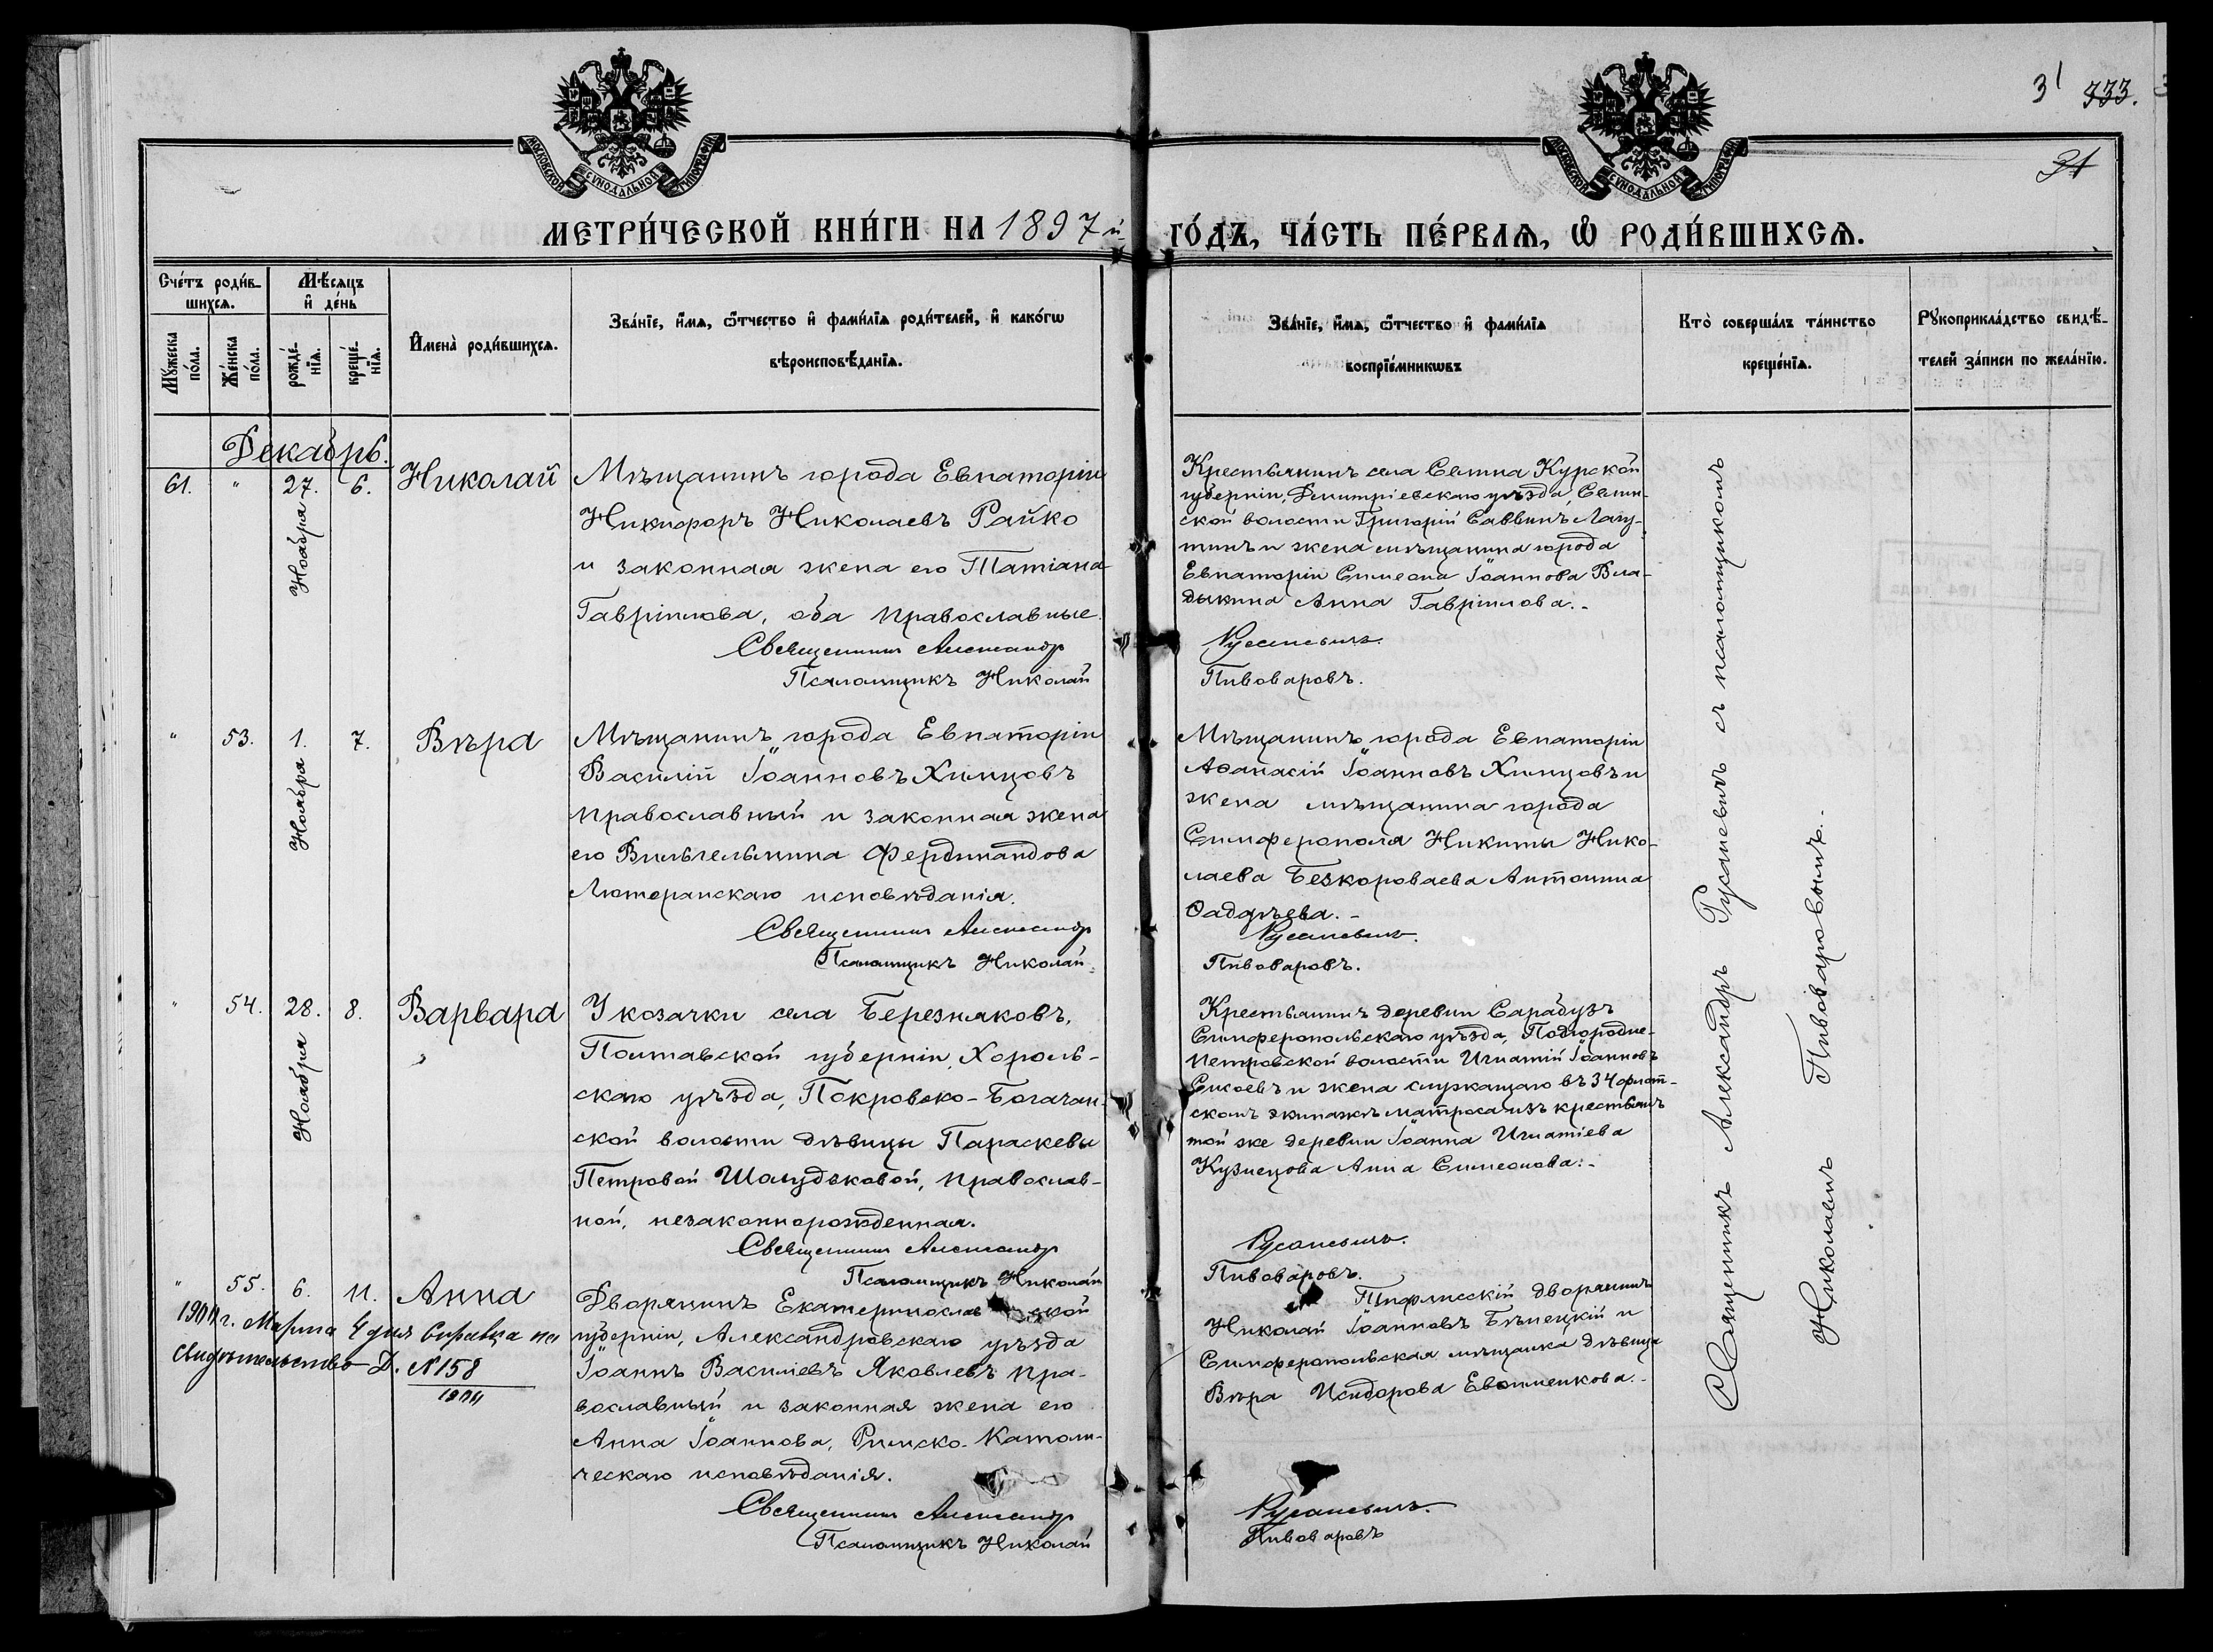 31 333.
31
МОСКОВСКОЙ СѴНОДАЛЬНОЙ ТИПОГРАФІИ
МОСКОВСКОЙ СѴНОДАЛЬНОЙ ТИПОГРАФІИ
МЕТРИ́ЧЕСКОЙ КНИ́ГИ НА 1897 й ГО́ДЪ, ЧА́СТЬ ПЕ́РВАѦ, Ѡ РОДИ́ВШИХСѦ.
Сче́тъ роди́в-
шихсѧ.
Мꙋ́жеска
по́ла.
Же́нска
по́ла.
Мѣ́сѧцъ
и҆ де́нь
рожде́-
нїѧ.
креще́-
нїѧ.
И҆мена̀ роди́вшихсѧ.
Зва́нїе, и҆́мѧ, ѻ҆́тчество и҆ фамі́лїѧ роди́телей, и҆ како́гѡ
вѣроисповѣ́данїѧ.
Зва́нїе, и҆́мѧ, ѻ҆́тчество и҆ фамі́лїѧ
воспрїе́мникѡвъ
Кто̀ соверша́лъ та́инство
креще́нїѧ.
Рꙋкоприкла́дство свидѣ́-
телей за́писи по жела́нїю.
Декабрь.
61. " 27. 6. Николай
Ноября
Мѣщанинъ города Евпаторіи
Никифоръ Николаевъ Райко
и законная жена его Татіана
Гавріилова, оба православные.
Священникъ Александръ
Псаломщикъ Николай
Крестьянинъ села Селина Курской
губерніи, Димитріевскаго уѣзда, Селин-
ской волости Григорій Саввинъ Лагу-
тинъ и жена мѣщанина города
Евпаторіи Симеона Іоаннова Вла-
дыкина Анна Гавріилова.-
Русаневичъ.
Пивоваровъ.
" 53. 1. 7. Вѣра
Ноября
Мѣщанинъ города Евпаторіи
Василій Іоанновъ Химцовъ
православный и законная жена
его Вильгельмина Фердинандова
Лютеранскаго исповѣданія.
Священникъ Александръ
Псаломщикъ Николай
Мѣщанинъ города Евпаторіи
Аѳанасій Іоанновъ Химцовъ и
жена мѣщанина города
Симферополя Никиты Нико-
лаева Безкороваева Антонина
Ѳаддѣева.-
Русаневичъ.
Пивоваровъ.
" 54. 28. 8. Варвара
Ноября
У козачки села Березняковъ,
Полтавской губерніи, Хороль-
скаго уѣзда, Покровско-Богачан-
ской волости дѣвицы Параскевы
Петровой Шолудьковой, православ-
ной, незаконнорожденная.
Священникъ Александръ
Псаломщикъ Николай
Крестьянинъ деревни Сарабузъ
Симферопольскаго уѣзда, Подгородне-
Петровской волости Игнатій Іоанновъ
Сысоевъ и жена служащаго въ 34 флот-
скомъ экипажѣ матроса изъ крестьянъ
той же деревни Іоанна Игнатіева
Кузнецова Анна Симеонова.-
Русаневичъ.
Пивоваровъ.
" 55. 6. 11. Анна
190 г. Марта 4 дня Справка на
свидѣтельство Д. № 158
Дворянинъ Екатеринославской
губерніи, Александровскаго уѣзда
Іоаннъ Василіевъ Яковлевъ пра-
вославный и законная жена его
Анна Іоаннова, Римско-Католи-
ческаго исповѣданія.
Священникъ Александръ
Псаломщикъ Николай
Тифлисскій дворянинъ
Николай Іоанновъ Бѣлецкій и
Симферопольская мѣщанка дѣвица
Вѣра Исидорова Евтименкова.-
Русаневичъ.
Пивоваровъ
Священникъ Александръ Русаневичъ съ псаломщикомъ
Николаемъ Пивоваровымъ.-